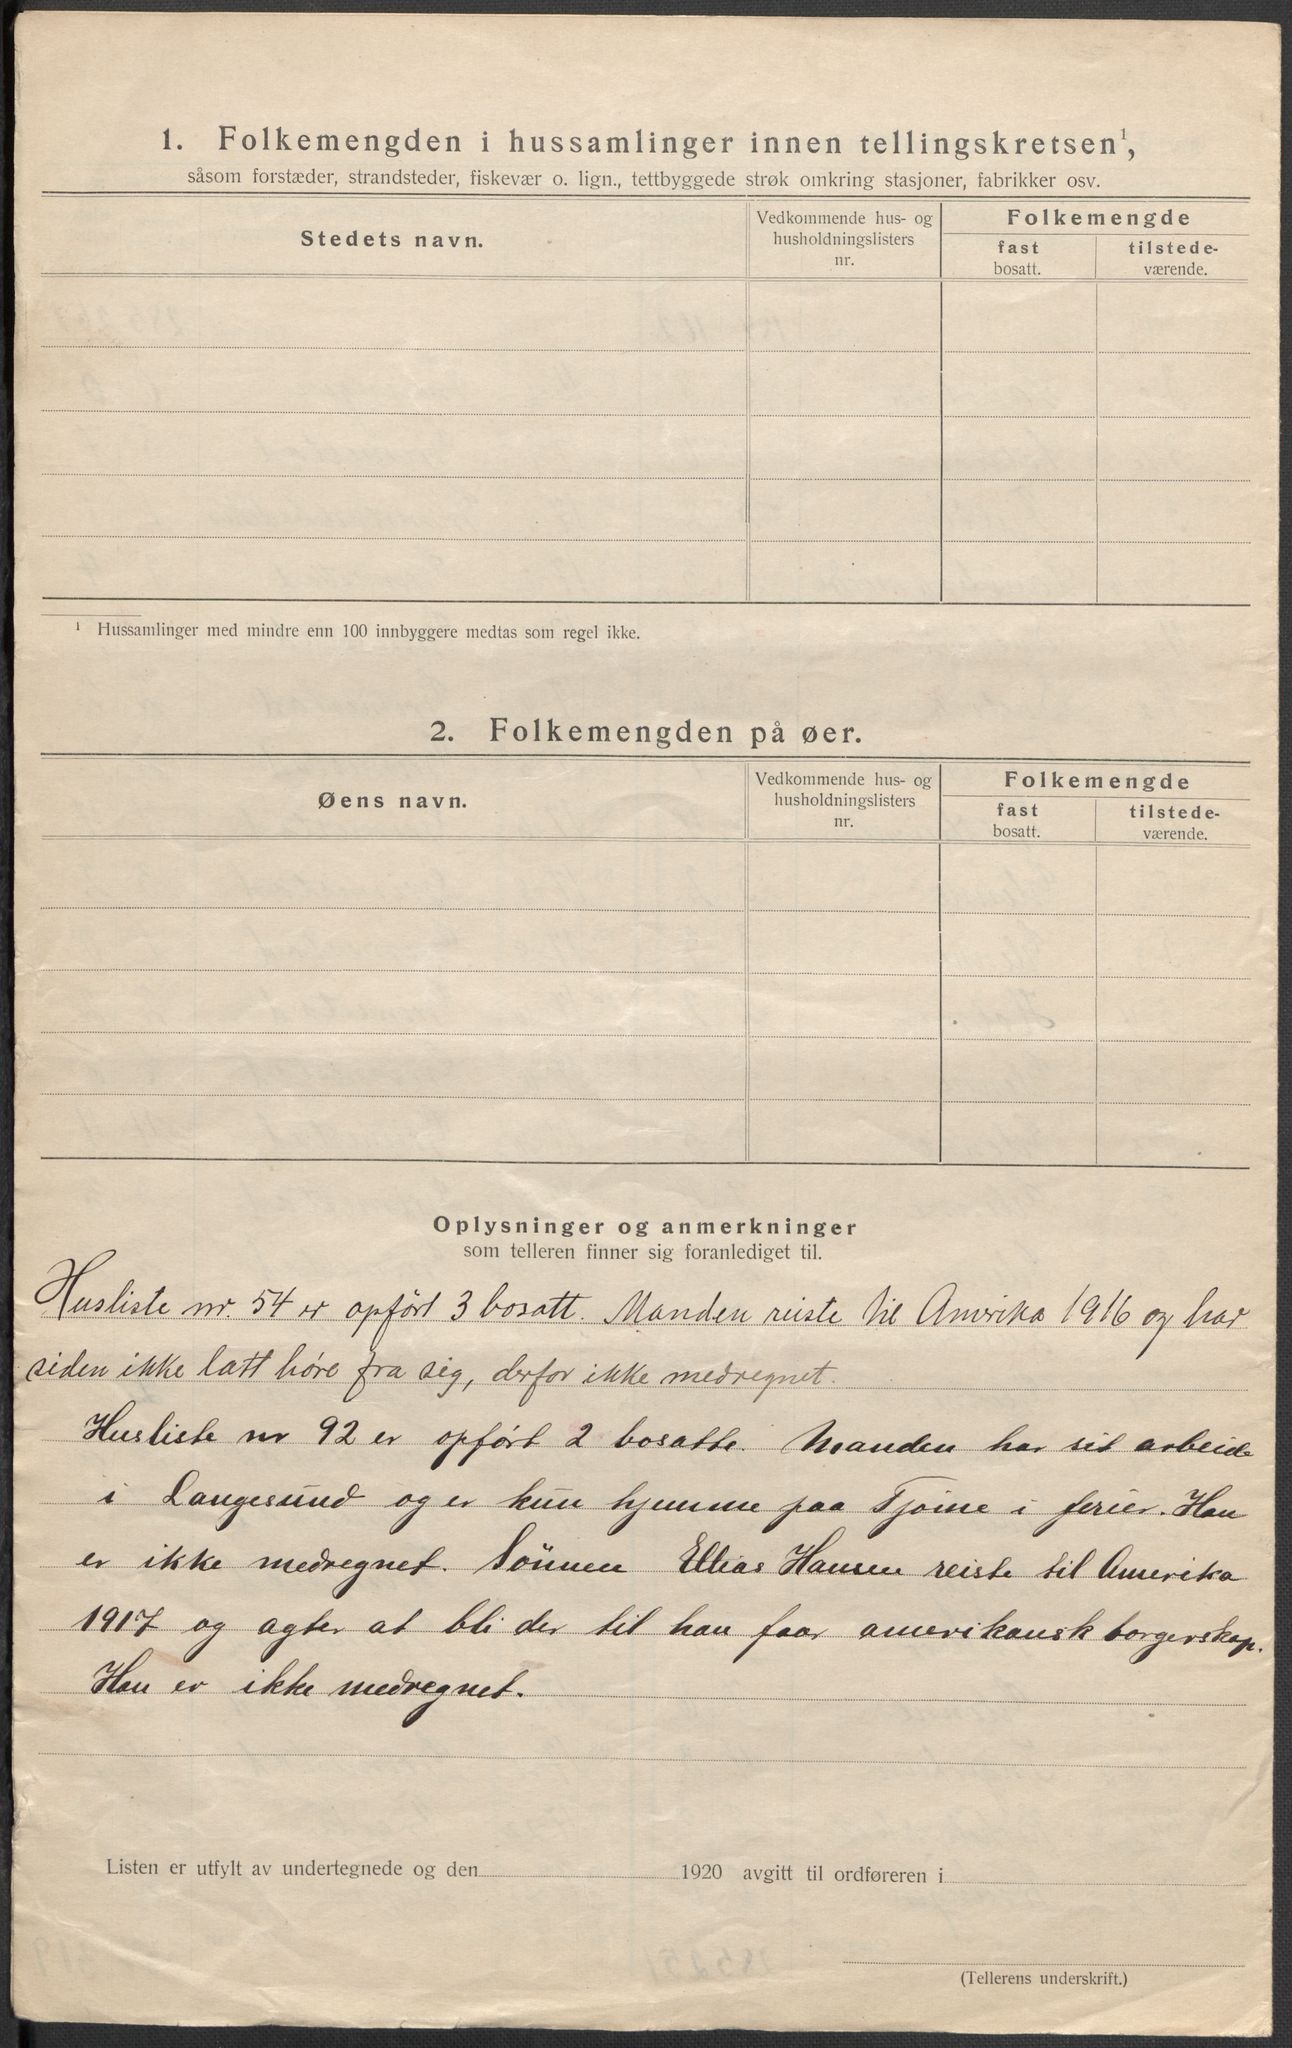 1. Folkemengden i hussamlinger innen tellingskretsen¹,
såsom forstæder, strandsteder, fiskevær o. lign., tettbyggede strøk omkring stasjoner, fabrikker osv.
Stedets navn.
Vedkommende hus- og
husholdningslisters
nr.
Folkemengde
fast
bosatt.
tilstede-
værende.
¹ Hussamlinger med mindre enn 100 innbyggere medtas som regel ikke.
2. Folkemengden på øer.
Øens navn.
Vedkommende hus- og
husholdningslisters
nr.
Folkemengde
fast
bosatt.
tilstede-
værende.
Oplysninger og anmerkninger
som telleren finner sig foranlediget til.
Husliste nr. 54 er opført 3 bosatt. Manden reiste til Amerika 1916 og har
siden ikke latt høre fra sig, derfor ikke medregnet.
Husliste nr 92 er opført 2 bosatte. Manden har sit arbeide
i Langesund og er kun hjemme paa Tjøme i ferier. Han
er ikke medregnet. Sønnen Ellias Hansen reiste til Amerika
1917 og agter at bli der til han faar amerikansk borgerskap.
Han er ikke medregnet.
Listen er utfylt av undertegnede og den 1920 avgitt til ordføreren i
(Tellerens underskrift.)